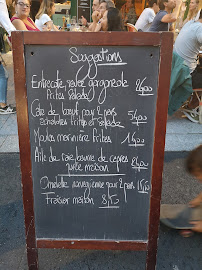 Suggestions
Entrecôte, sauce gorgonzola
frites salade 26,00
Côte de boeuf pour 2 pers
échalotes frites et salade 54,00
Moules marinière frites
14,00
Aile de raie, beurre de capres
purée maison 24,00
Omelette norvégienne pour 2 pers
Fraisier maison 8,50